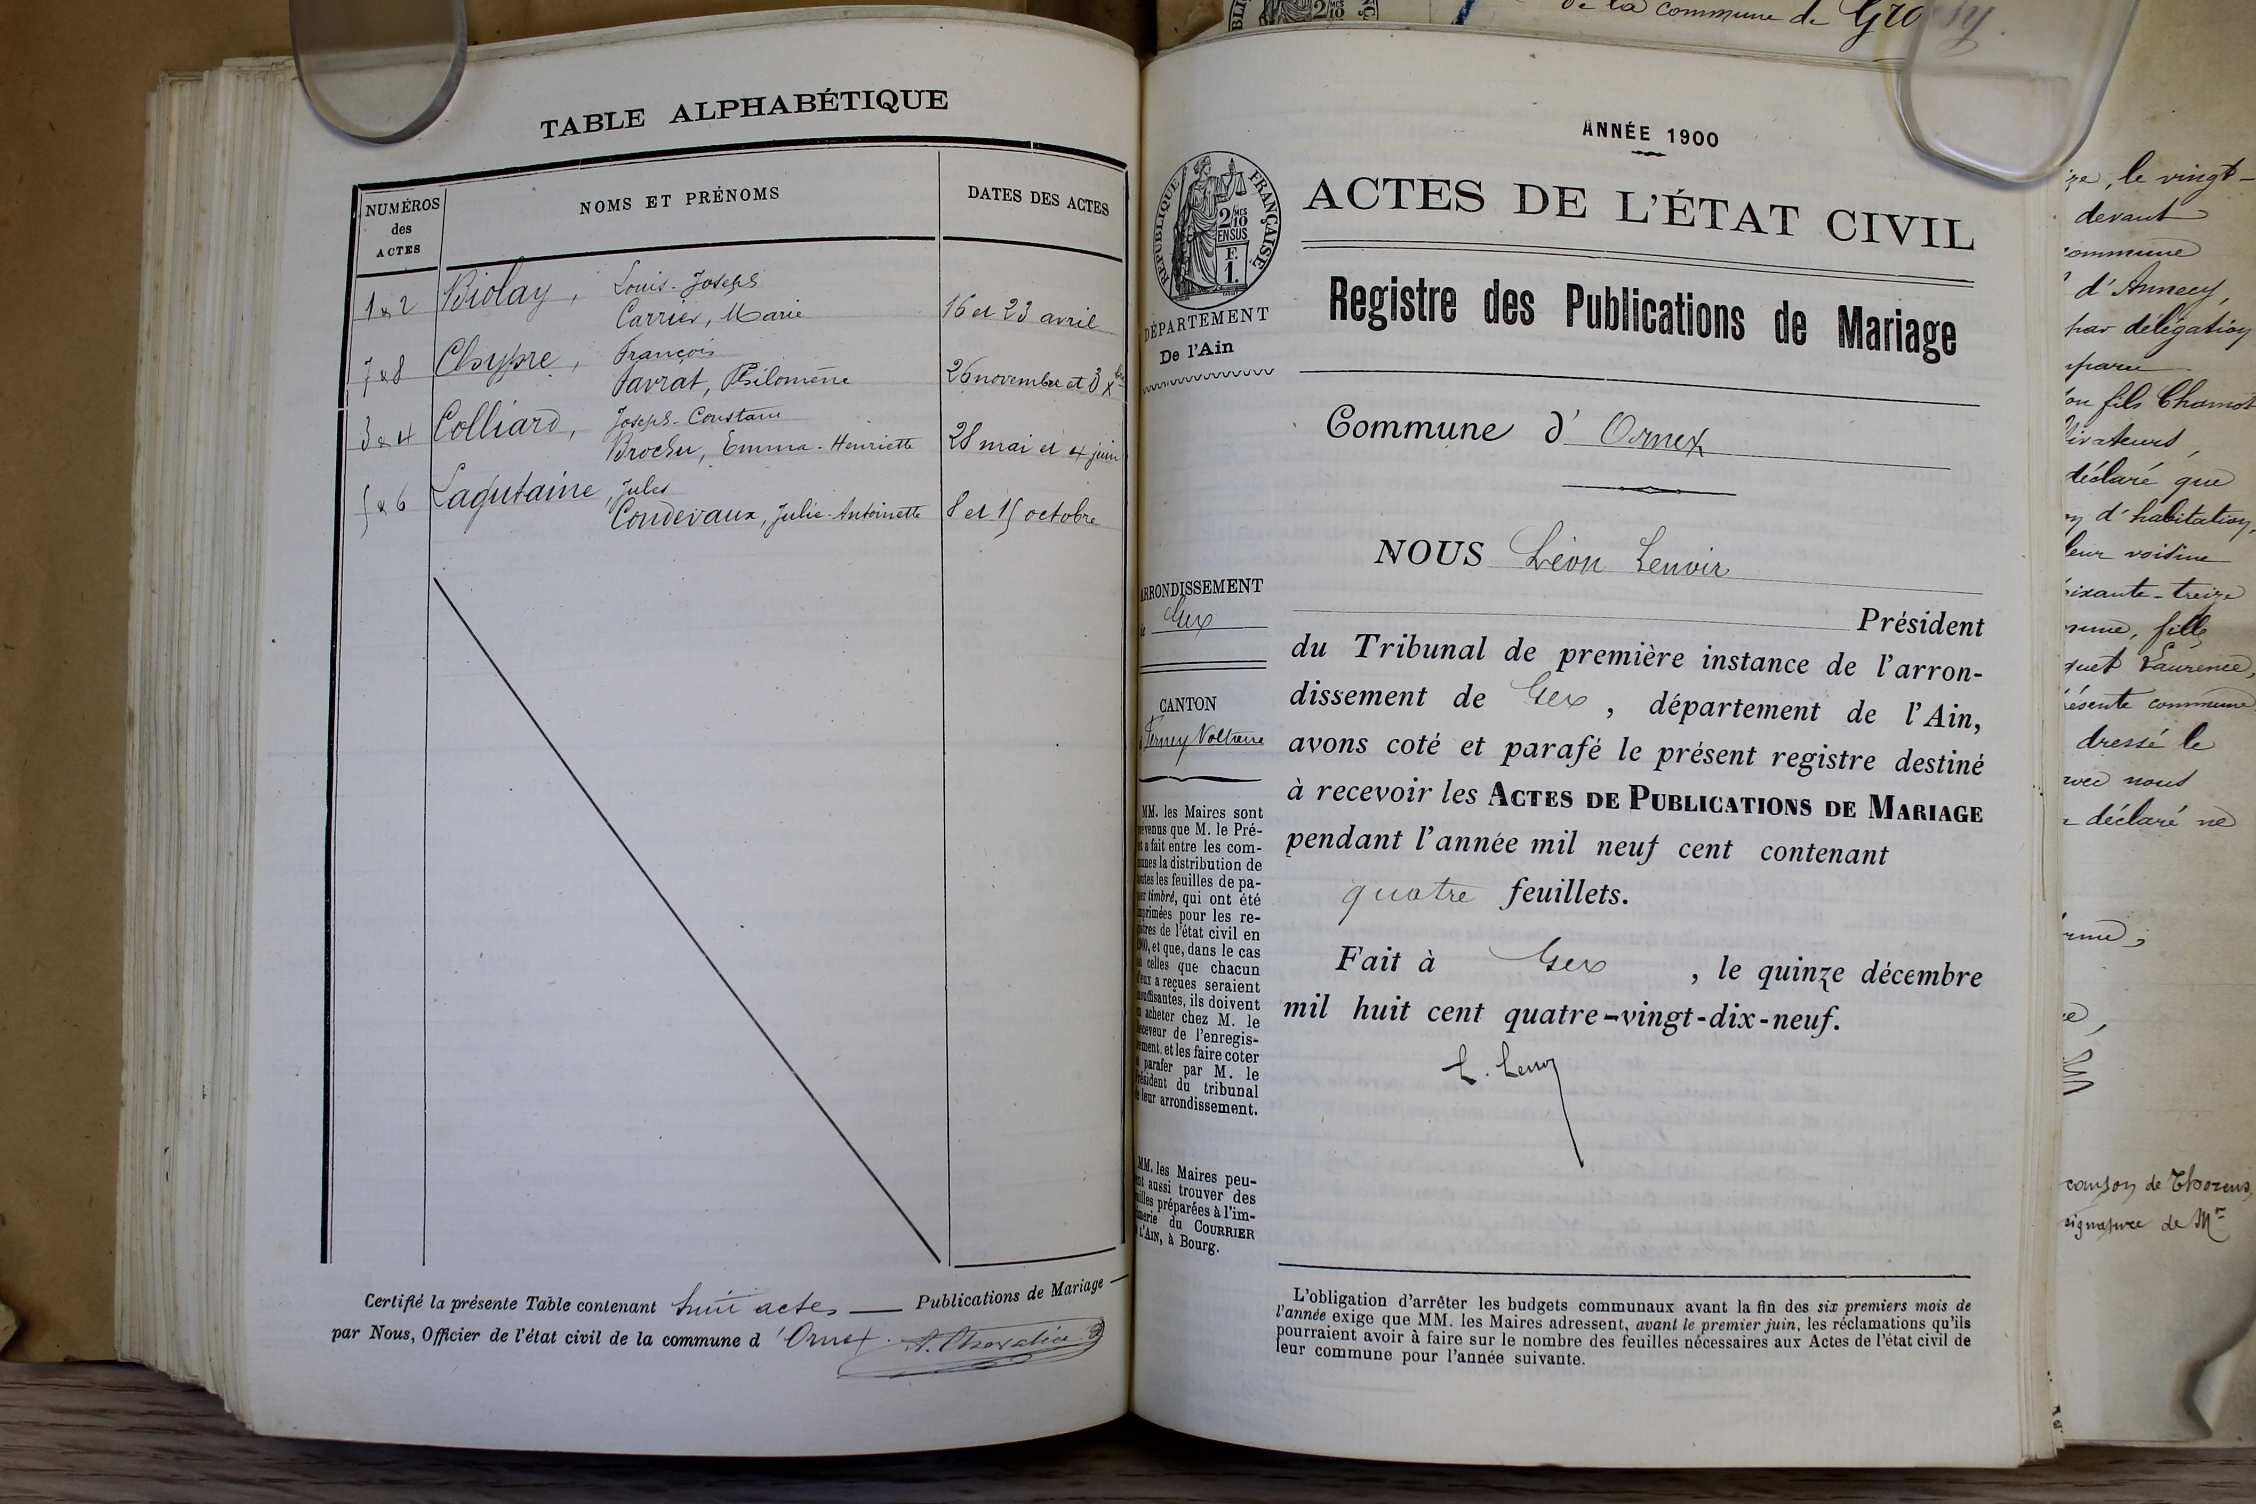 TABLE ALPHABÉTIQUE
NUMÉROS des ACTES
NOMS ET PRÉNOMS
DATES DES ACTES
1 & 2 Biolay, Louis-Joseph
Carrier, Marie 16 et 23 avril
7 & 8 Chypre, François
Favrat, Philomène 26 novembre et 3 xbre
3 & 4 Colliard, Joseph-Constant
Brochu, Emma-Henriette 28 mai et 4 juin
5 & 6 Laqutaine, Jules
Coudevaux, Julie-Antoinette 8 et 15 octobre
Certifié la présente Table contenant huit actes — Publications de Mariage —
par Nous, Officier de l'état civil de la commune d'Ornex.
ANNÉE 1900
RÉPUBLIQUE FRANÇAISE
2/10 MES
EN SUS
F.
1.
ACTES DE L'ÉTAT CIVIL
DÉPARTEMENT
De l'Ain
Registre des Publications de Mariage
Commune d'Ornex
NOUS Léon Lenoir
Président
ARRONDISSEMENT
de Gex
du Tribunal de première instance de l'arron-
dissement de Gex, département de l'Ain,
avons coté et parafé le présent registre destiné
à recevoir les ACTES DE PUBLICATIONS DE MARIAGE
pendant l'année mil neuf cent contenant
quatre feuillets.
Fait à Gex, le quinze décembre
mil huit cent quatre-vingt-dix-neuf.
L. Lenoir
CANTON
Ferney Voltaire
MM. les Maires sont
prévenus que M. le Pré-
fet a fait entre les com-
munes la distribution de
toutes les feuilles de pa-
pier timbré, qui ont été
imprimées pour les re-
gistres de l'état civil en
1900, et que, dans le cas
où celles que chacun
d'eux a reçues seraient
insuffisantes, ils doivent
en acheter chez M. le
Receveur de l'enregis-
trement, et les faire coter
et parafer par M. le
Président du tribunal
de leur arrondissement.
MM. les Maires peu-
vent aussi trouver des
feuilles préparées à l'im-
primerie du COURRIER
DE L'AIN, à Bourg.
L'obligation d'arrêter les budgets communaux avant la fin des six premiers mois de
l'année exige que MM. les Maires adressent, avant le premier juin, les réclamations qu'ils
pourraient avoir à faire sur le nombre des feuilles nécessaires aux Actes de l'état civil de
leur commune pour l'année suivante.
de la commune de
le vingt-
devant
commune
d'Annecy,
par délégation
fils Chamot
déclaré que
d'habitation,
leur voisine
soixante-treize
fille
Laurence,
présente commune
dressé le
avec nous
déclaré ne
de Thorens,
signature de Mr